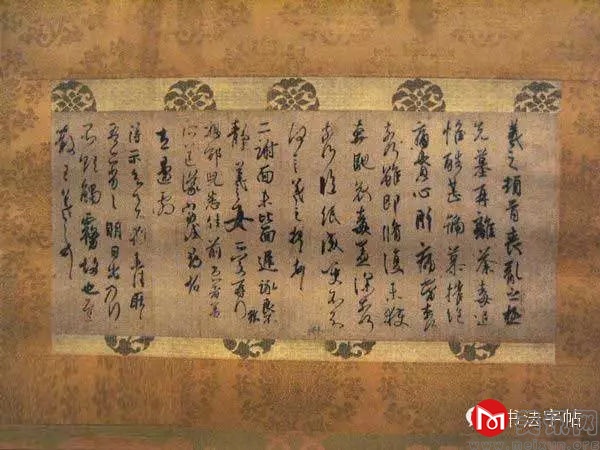 羲之頓首喪亂之極
先墓再離荼毒追
惟酷甚號慕摧絕
痛貫心肝痛當奈何
奈何雖即脩復未獲
奔馳哀毒益深奈何
奈何臨紙感哽不知
何言羲之頓首頓首
二謝面未比面遲詠良不
靜羲之女愛再拜
想邵兒悉佳前患者善
所送議當試尋省
左邊劇
得示知足下猶未佳耿耿
吾亦劣劣明日出乃行
不欲觸霧故也遲
散王羲之頓首
书法字帖